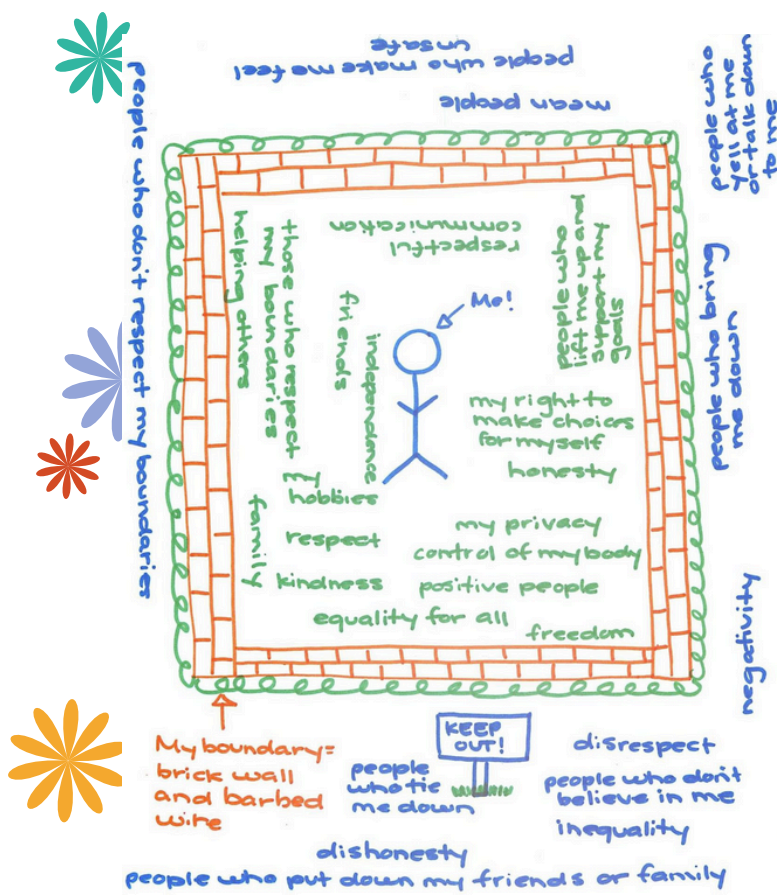 people who make me feel
unsafe
mean people
people who
yell at me
or talk down
to me
people who don't respect my boundaries
people who bring
me down
negativity
respectful
communication
people who
lift me up and
support my
goals
those who respect
my boundaries
helping others
friends
independence
Me!
my right to
make choices
for myself
honesty
my
hobbies
family
respect
kindness
my privacy
control of my body
positive people
equality for all
freedom
My boundary=
brick wall
and barbed
wire
KEEP
OUT!
people
who tie
me down
disrespect
people who don't
believe in me
inequality
dishonesty
people who put down my friends or family